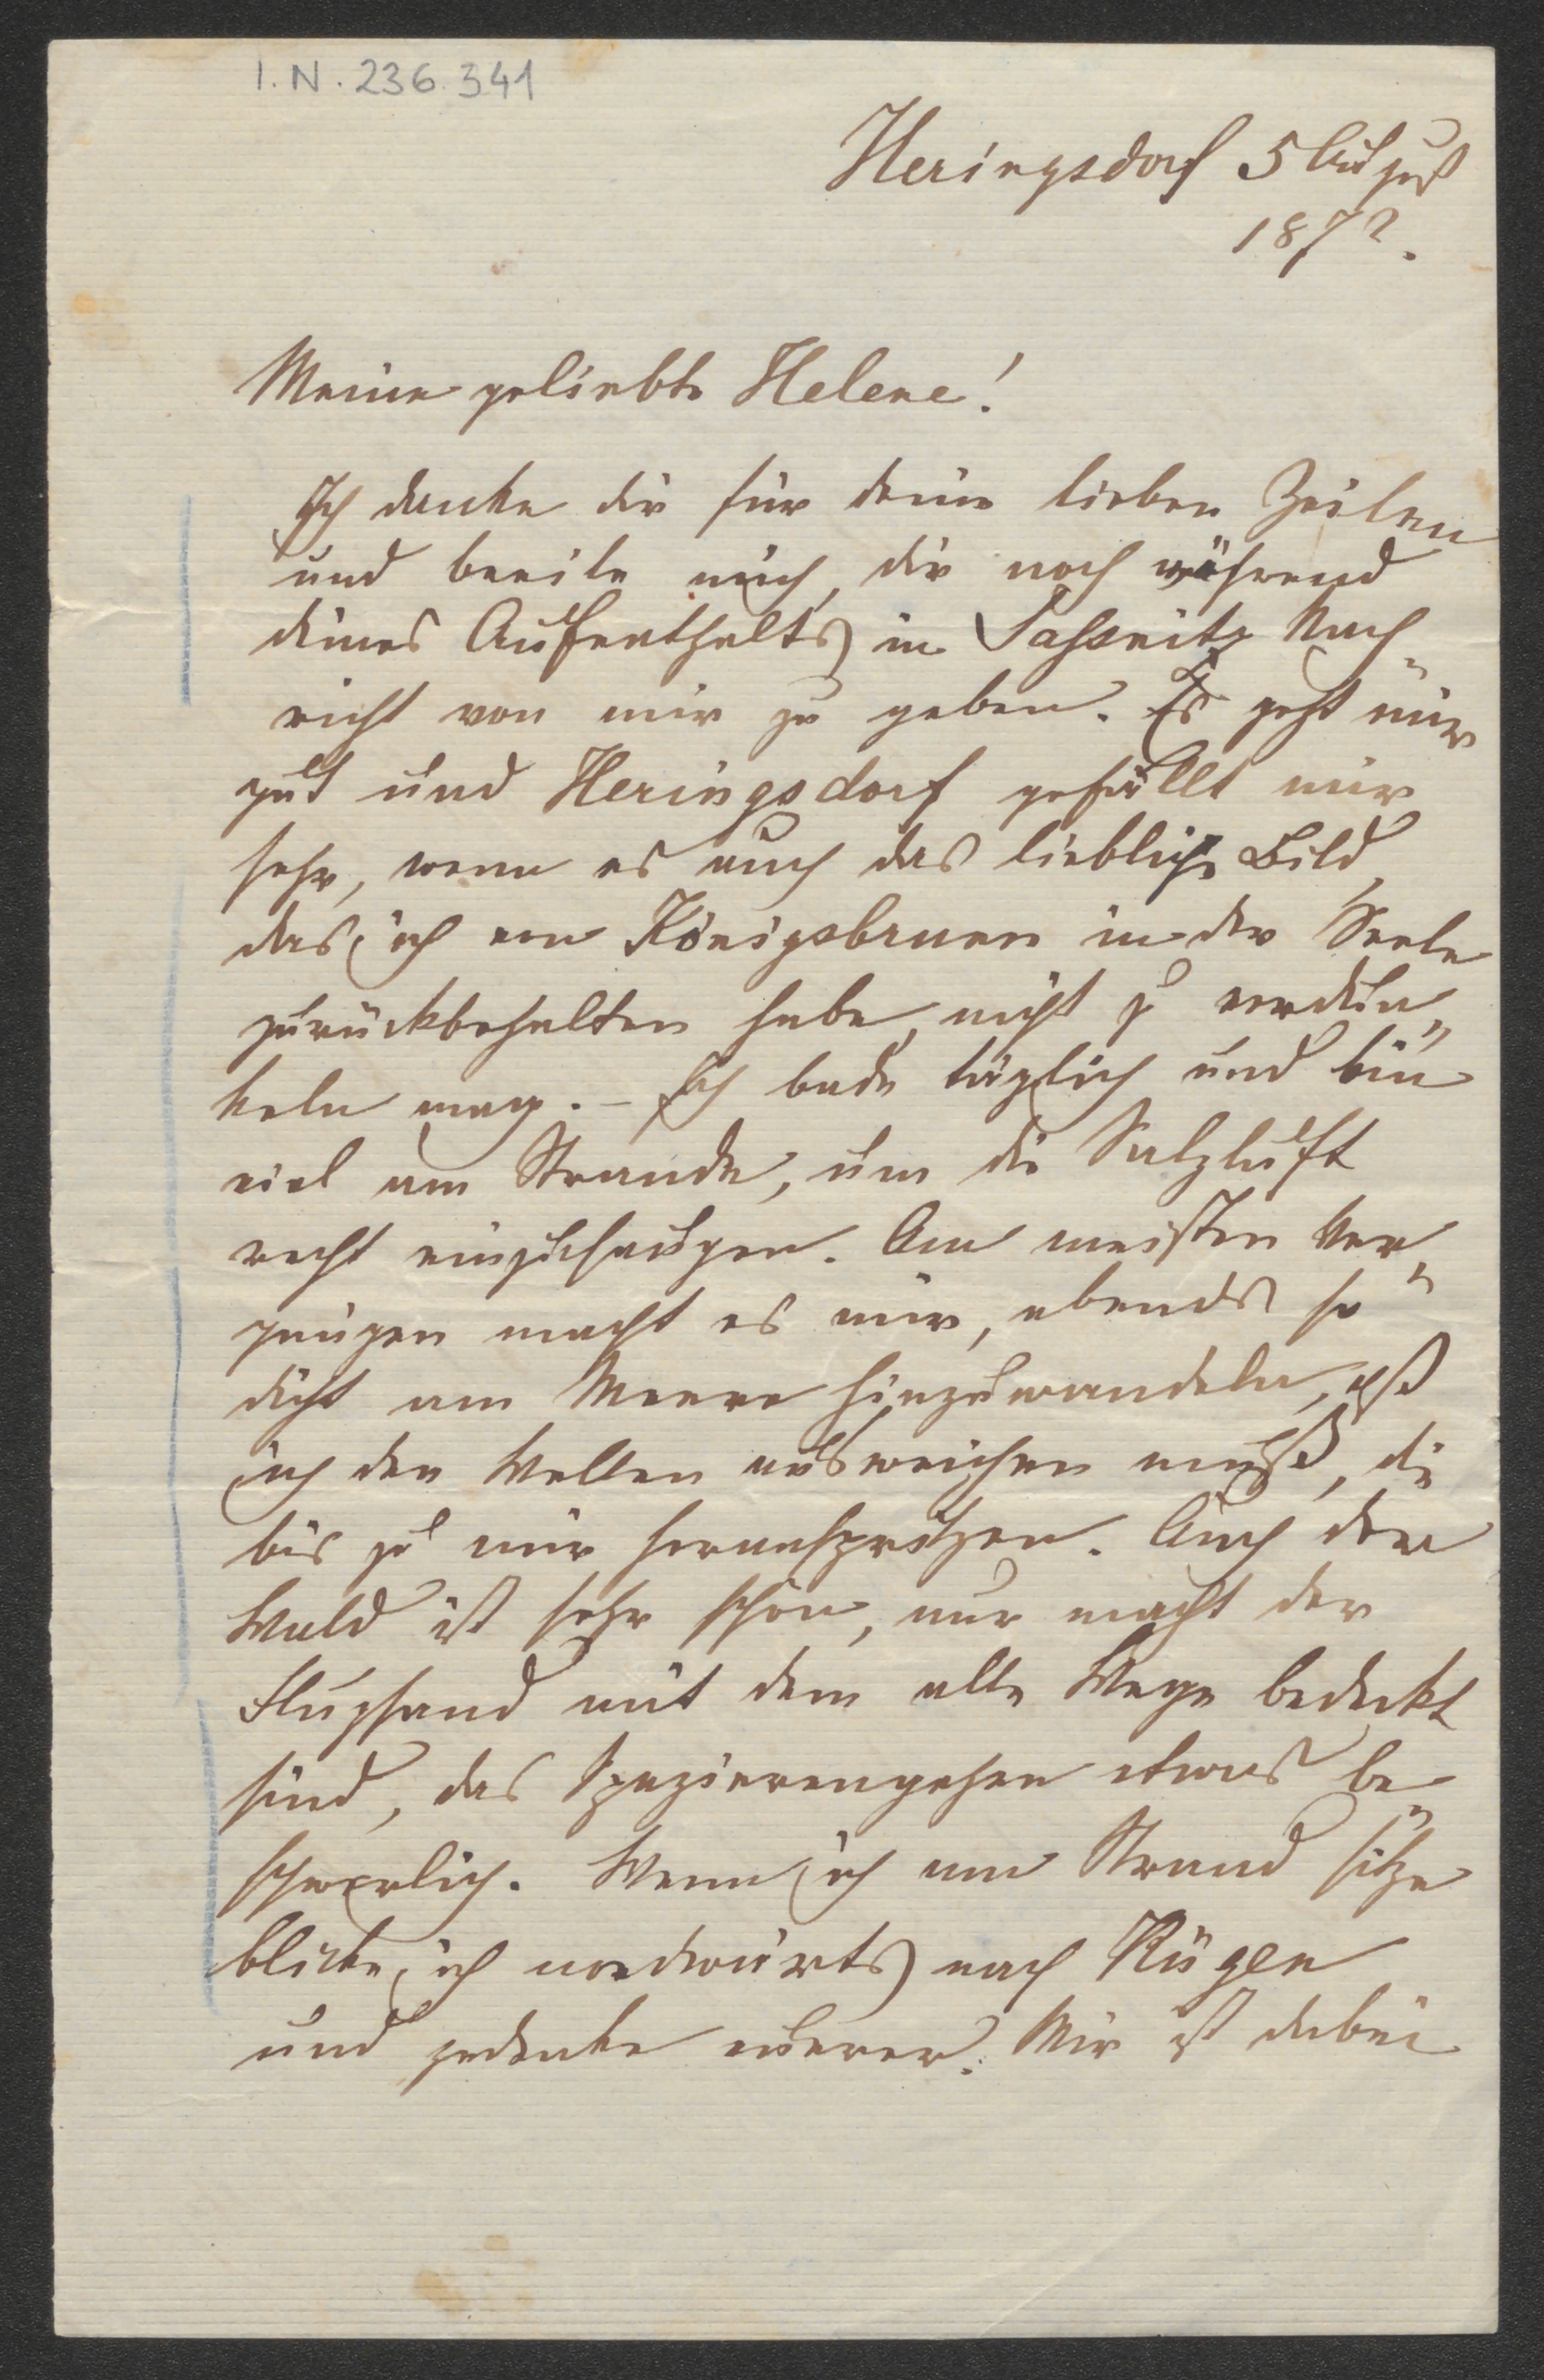 I.N. 236.341
Heringsdorf 5 August
1872.
Meine geliebte Helene!
Ich danke dir für deine lieben Zeilen
und beeile mich, dir noch während
deines Aufenthalts in Sassnitz Nach-
richt von mir zu geben. Es geht mir
gut und Heringsdorf gefällt mir
sehr, wenn es auch das liebliche Bild,
das ich von Königsbrunn in der Seele
zurückbehalten habe, nicht zu verdun-
keln mag. – Ich bade täglich und bin
viel am Strande, um die Salzluft
recht einzusaugen. Am meisten Ver-
gnügen macht es mir, abends so
dicht am Meere hinzuwandeln, daß
ich den Wellen ausweichen muß, die
bis zu mir heranspritzen. Auch der
Wald ist sehr schön, nur macht der
Flugsand mit dem alle Wege bedeckt
sind, das Spazierengehen etwas be-
schwerlich. Wenn ich am Strand sitze
blicke ich nordwärts nach Rügen
und gedenke euerer. Mir ist dabei